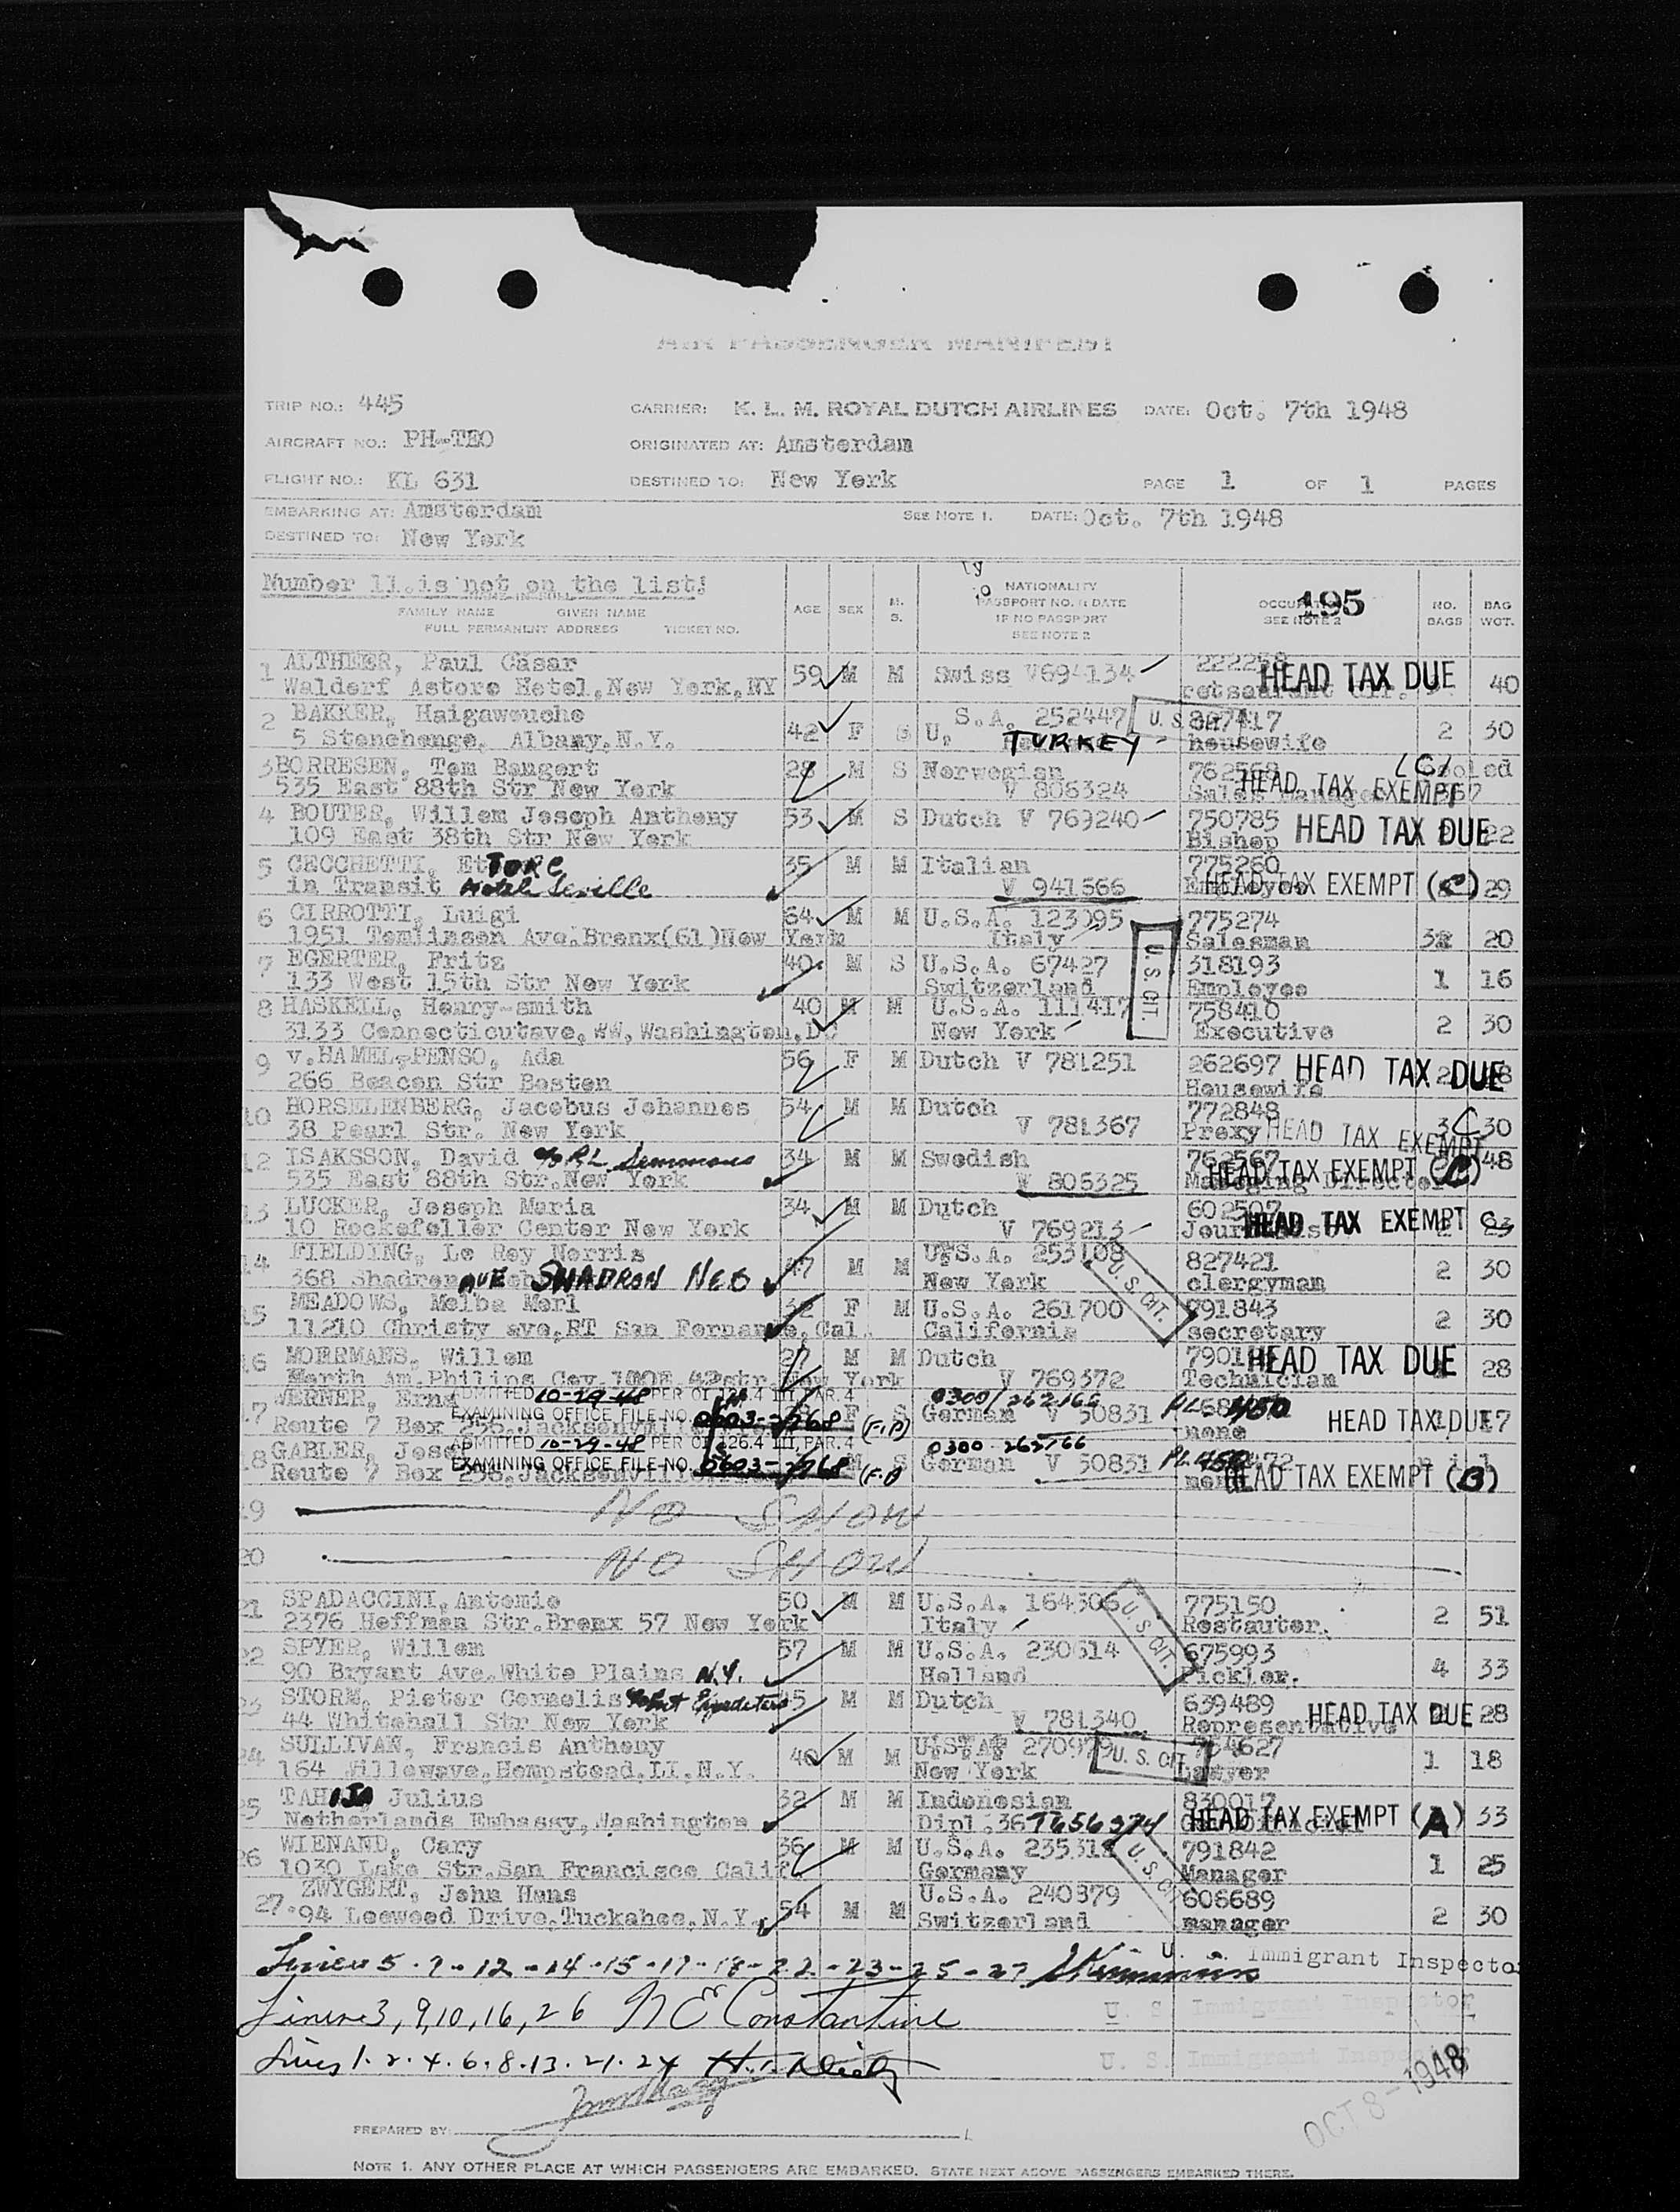 AIR PASSENGER MANIFEST
TRIP NO.: 445 CARRIER: K. L. M. ROYAL DUTCH AIRLINES DATE: Oct. 7th 1948
AIRCRAFT NO.: PH-TEO ORIGINATED AT: Amsterdam
FLIGHT NO.: KL 631 DESTINED TO: New York PAGE 1 OF 1 PAGES
EMBARKING AT: Amsterdam SEE NOTE 1. DATE: Oct. 7th 1948
DESTINED TO: New York
Number 11.is not on the list!
FAMILY NAME GIVEN NAME AGE SEX M. S. NATIONALITY PASSPORT NO. & DATE OCCUPATION 195 NO. BAGS BAG WGT.
FULL PERMANENT ADDRESS TICKET NO. IF NO PASSPORT SEE NOTE 2 SEE NOTE 2
1 ALTHEER, Paul Casar 59 M M Swiss V694134 HEAD TAX DUE 40
Waldorf Astore Hotel, New York, NY
2 BAKKER, Haigawouche 42 F S U. S.A. 252447 U. S. CIT. 827417 2 30
5 Stonehenge, Albany, N.Y. TURKEY housewife
3 BORRESEN, Tom Bangert 28 M S Norwegian 762568 (C)
535 East 88th Str New York V 806324 HEAD TAX EXEMPT
4 BOUTER, Willem Joseph Anthony 53 M S Dutch V 769240 750785 HEAD TAX DUE 22
109 East 38th Str New York Bishop
5 CECCHETTI, EtTORE 35 M M Italian 775260
in Transit Hotel Seville V 941566 Employee HEAD TAX EXEMPT (C) 29
6 CIRROTTI, Luigi 64 M M U.S.A. 123095 775274
1951 Tomlinson Ave. Bronx(61)New York Italy U. S. CIT. Salesman 20
7 EGERTER, Fritz 40 M S U.S.A. 67427 318193 1 16
133 West 15th Str New York Switzerland Employee
8 HASKELL, Henry-smith 40 M M U.S.A. 111417 758410 2 30
3133 Connecticutave, NW, Washington, DC New York Executive
9 v.HAMEL-PENSO, Ada 56 F M Dutch V 781251 262697 HEAD TAX DUE
266 Beacon Str Boston Housewife
10 HORSELENBERG, Jacobus Johannes 54 M M Dutch 772848 3 C 30
38 Pearl Str. New York V 781367 Proxy HEAD TAX EXEMPT
12 ISAKSSON, David c/o R.L. Semmons 34 M M Swedish 762567 48
535 East 88th Str. New York V 806325 Managing Director HEAD TAX EXEMPT (C)
13 LUCKER, Joseph Maria 34 M M Dutch 602507 HEAD TAX EXEMPT C 23
10 Rockefeller Center New York V 769213
14 FIELDING, Le Roy Norris 47 M M U.S.A. 253108 827421 2 30
368 Shadron AVE SHADRON NEB New York U. S. CIT. clergyman
15 MEADOWS, Melba Merl 32 F M U.S.A. 261700 791843 2 30
11210 Christy ave, RT San Fernando, Cal. California secretary
16 MORRMANS, Willem 27 M M Dutch HEAD TAX DUE 28
North Am. Philips Coy. 100E 42str. New York V 769372 Technician
17 WERNER, Erna ADMITTED 10-29-48 PER OI 126.4 III, PAR. 4 F S German V 50831 0300/262166 HEAD TAX DUE 17
Route 7 Box 256, Jacksonville EXAMINING OFFICE FILE NO. 0603-2768 (F.P.) none
18 GABLER, Jose ADMITTED 10-29-48 PER OI 126.4 III, PAR. 4 S German V 50831 0300-262766
Route 7 Box 256, Jacksonville EXAMINING OFFICE FILE NO. 0603-2768 (F.P) HEAD TAX EXEMPT (B)
19 NO SHOW
20 NO SHOW
21 SPADACCINI, Antonio 50 M M U.S.A. 164306 U. S. CIT. 775150 2 51
2376 Hoffman Str. Bronx 57 New York Italy Restauter.
22 SPYER, Willem 57 M M U.S.A. 230614 675993 4 33
90 Bryant Ave. White Plains N.Y. Holland Pickler.
23 STORM, Pieter Cornelis 45 M M Dutch 639489 HEAD TAX DUE 28
44 Whitehall Str New York V 781340 Representative
24 SULLIVAN, Francis Anthony 40 M M U.S.A. 270979 U. S. CIT. 754627 1 18
164 Willowave, Hempstead, LI, N.Y. New York Lawyer
25 TAHIJA Julius 32 M M Indonesian 830017 HEAD TAX EXEMPT (A) 33
Netherlands Embassy, Washington Dipl.36T656974
26 WIENAND, Cary 36 M M U.S.A. 235318 U. S. CIT. 791842 1 25
1030 Lake Str. San Francisco Calif Germany Manager
27 ZWYGERT, John Hans 54 M M U.S.A. 240379 606689 2 30
94 Leewood Drive, Tuckahoe, N.Y. Switzerland manager
Lines 5-7-12-14-15-17-18-22-23-25-27 U. S. Immigrant Inspector
Lines 3, 9, 10, 16, 26 N E Constantine U. S. Immigrant Inspector
Lines 1.2.4.6.8.13.21.24 U. S. Immigrant Inspector
OCT 8-1948
PREPARED BY:
NOTE 1. ANY OTHER PLACE AT WHICH PASSENGERS ARE EMBARKED. STATE NEXT ABOVE PASSENGERS EMBARKED THERE.